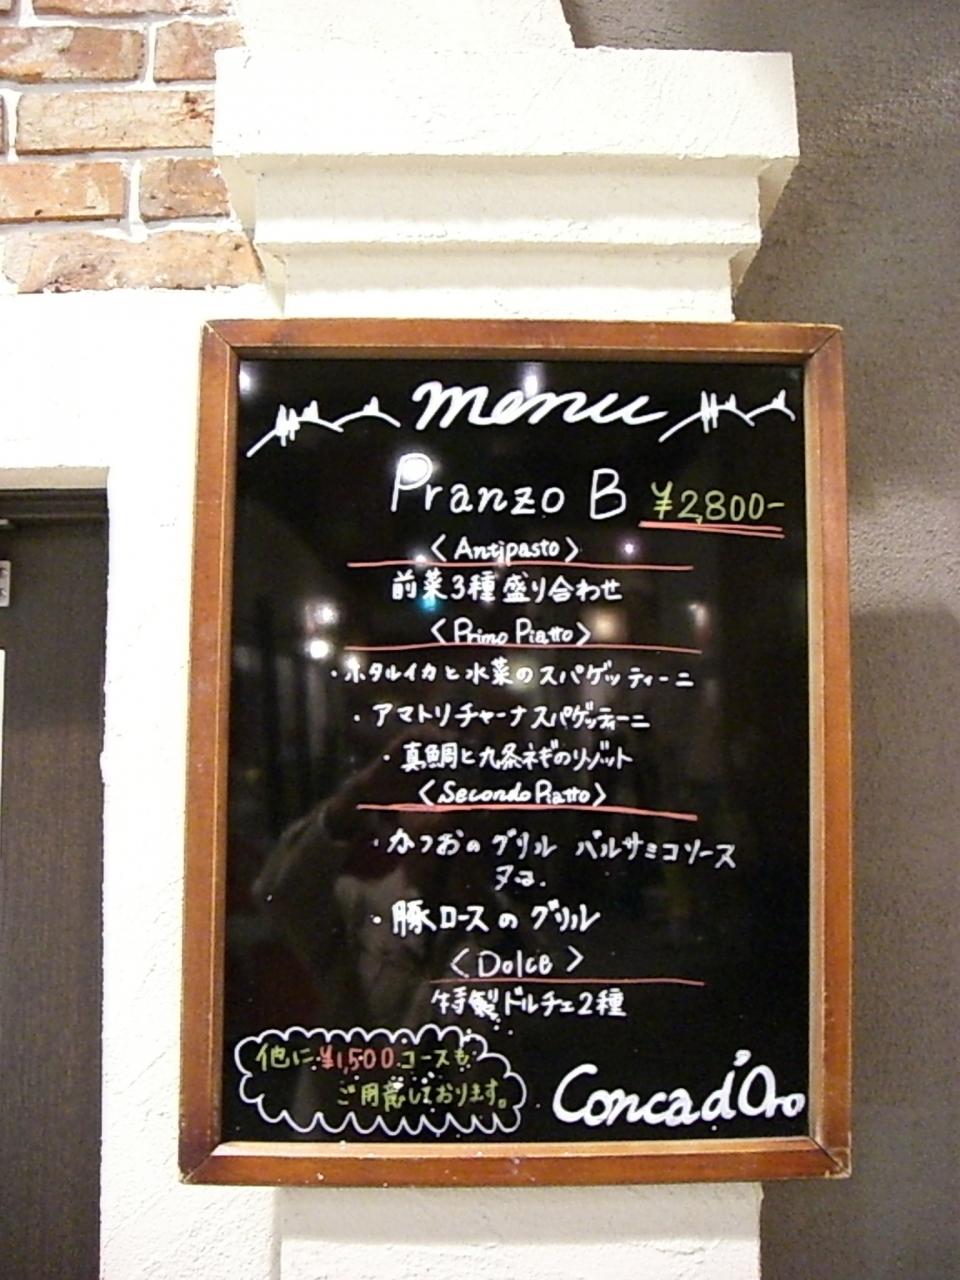 menu
Pranzo B ¥2,800-
〈Antipasto〉
前菜3種盛り合わせ
〈Primo Piatto〉
・ホタルイカと水菜のスパゲッティーニ
・アマトリチャーナスパゲッティーニ
・真鯛と九条ネギのリゾット
〈Secondo Piatto〉
・かつおのグリル バルサミコソース
又は.
・豚ロースのグリル
〈Dolce〉
特製ドルチェ2種
他に¥1,500コースも
ご用意しております。
Conca d'Oro